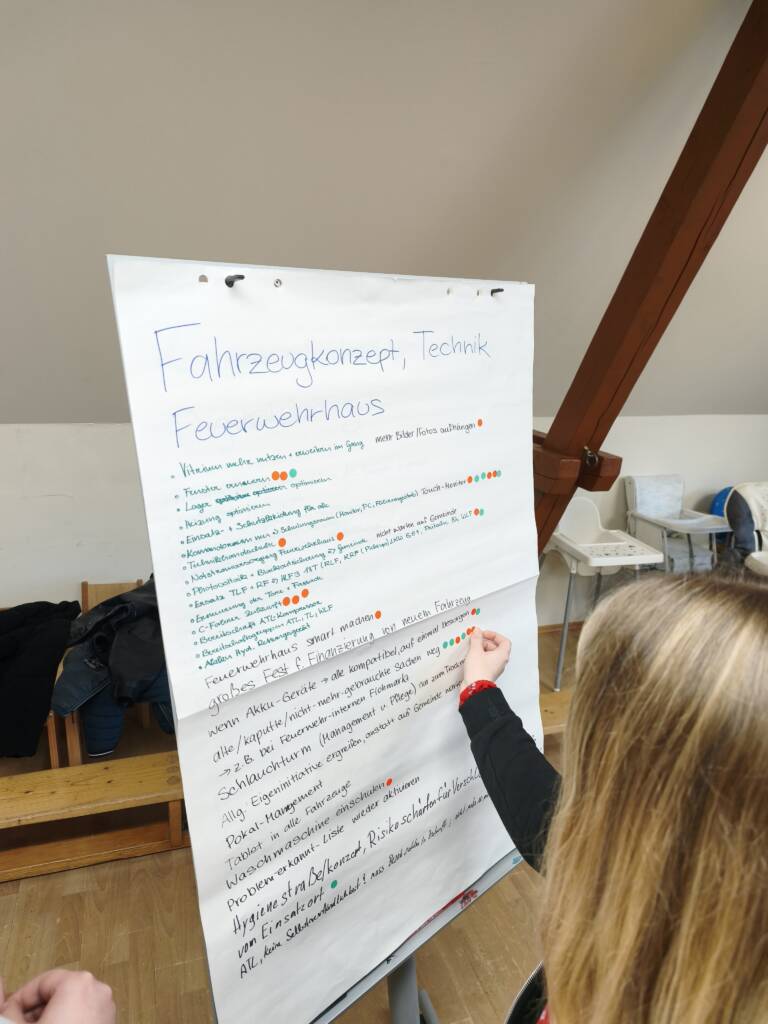 Fahrzeugkonzept, Technik
Feuerwehrhaus
• Vitrinen mehr nutzen + erweitern im Gang mehr Bilder/Fotos aufhängen
• Fenster erneuern
• Lager optimieren
• Heizung optimieren
• Einsatz- + Schutzkleidung für alle
• Kommandoraum neu → Schulungsraum (Monitor, PC, Führungsstab) Touch-Monitor
• Notstromversorgung Feuerwehrhaus nicht warten auf Gemeinde
• Photovoltaik + Blackoutsicherung → Gemeinde
• Ersatz TLF + RF →
• Erneuerung der Tore + Fassade
• C-Fahrer Zukunft
• Bereitschaft ATL-Kompressor
• Bereitschaftsgruppen ATL, TL, KLF
Feuerwehrhaus smart machen
großes Fest f. Finanzierung von neuem Fahrzeug
wenn Akku-Geräte → alle kompatibel, auf einmal besorgen
alte/kaputte/nicht-mehr-gebrauchte Sachen weg
→ z.B. bei Feuerwehr-internen Flohmarkt
Schlauchturm (Management u. Pflege)
Allg: Eigeninitiative ergreifen, anstatt auf Gemeinde
Pokal-Management
Tablet in alle Fahrzeuge
Waschmaschine einschulen
Problem-erkannt-Liste wieder aktivieren
Hygienestraße/konzept, Risiko schärfen für
vom Einsatzort
ATL, keine Selbstverständlichkeit!